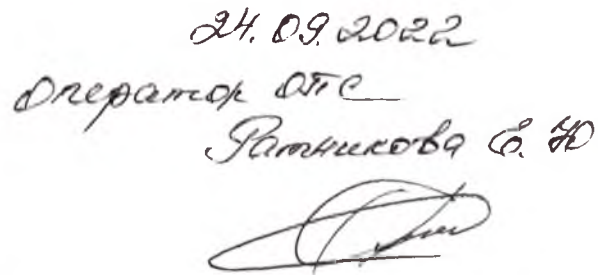 24.09.2022
Оператор ОПС
Ратникова Е. Ю